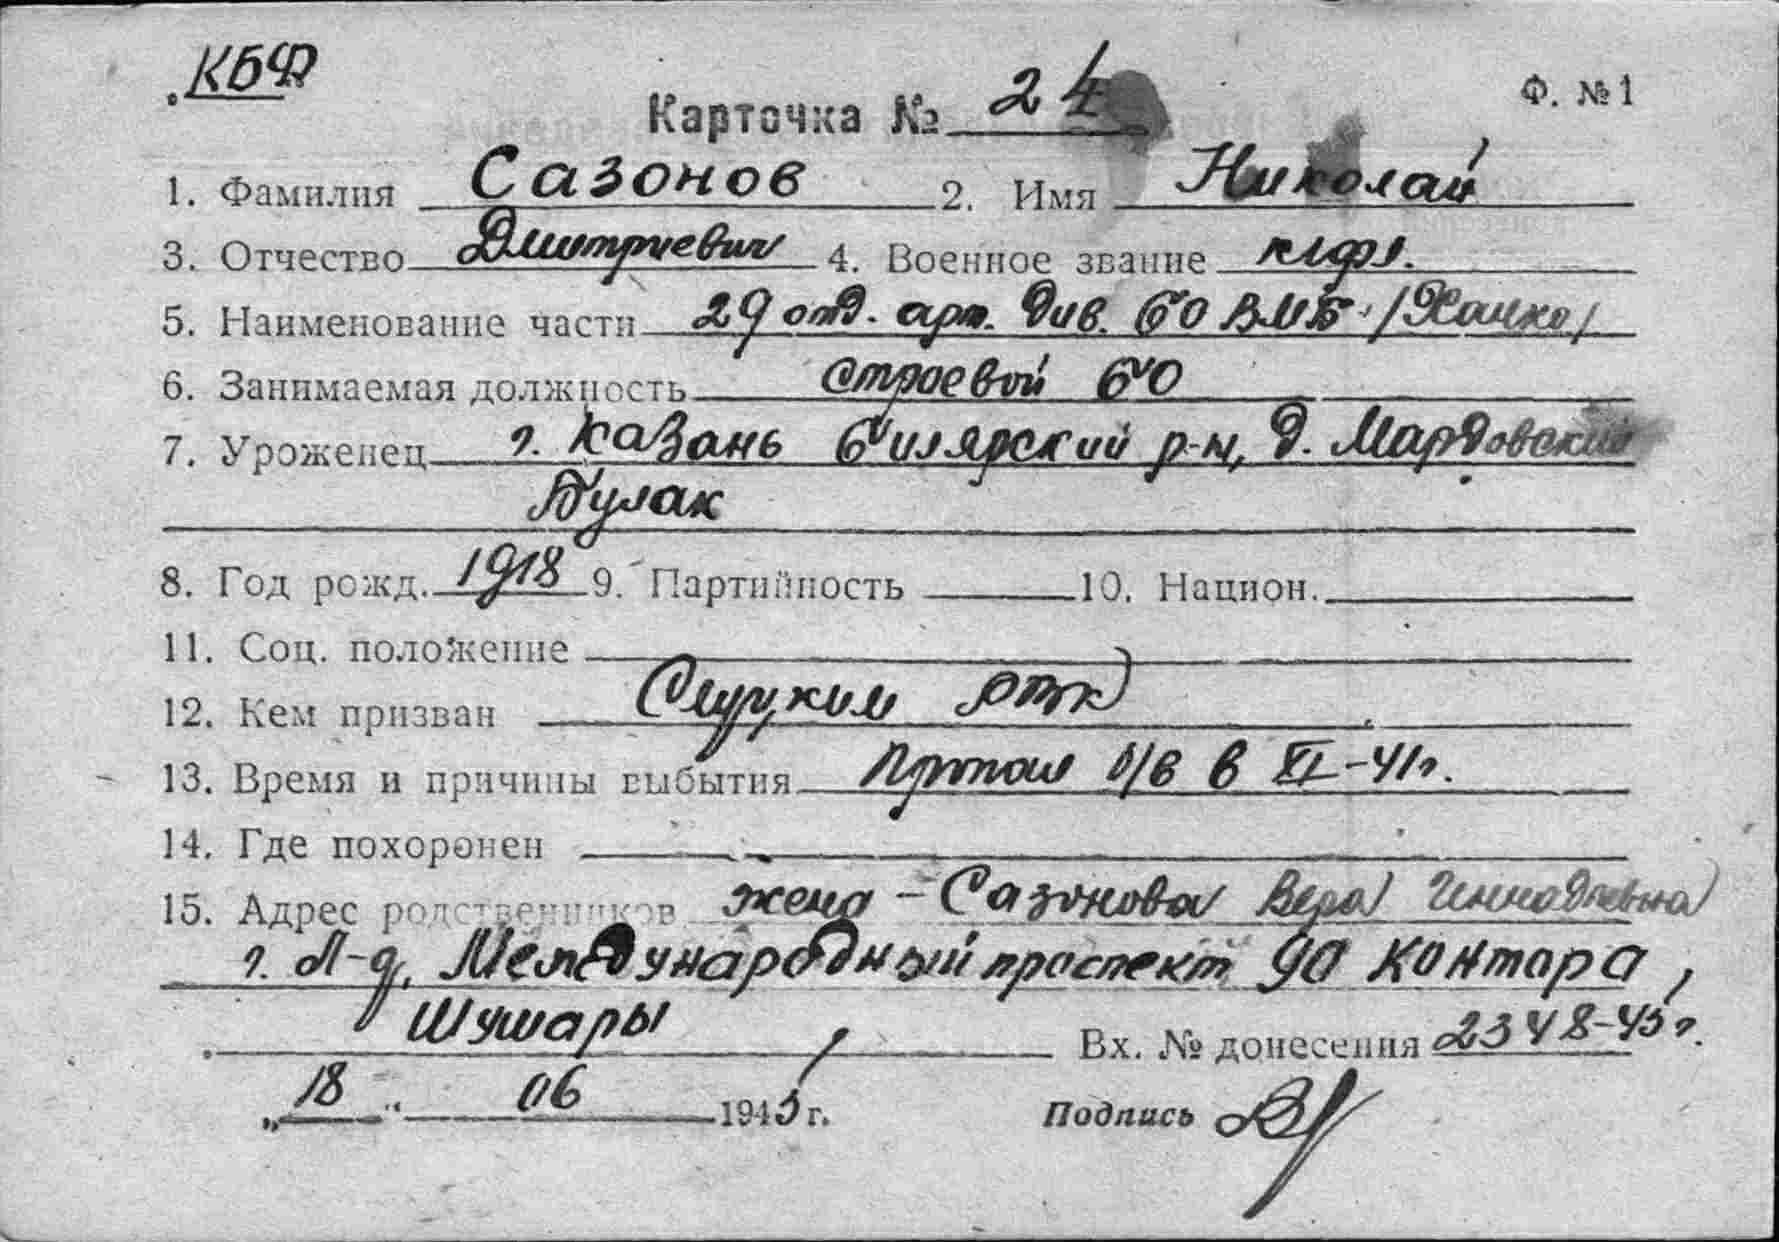 КБФ
Карточка № 24 Ф. №1
1. Фамилия Сазонов 2. Имя Николай
3. Отчество Дмитриевич 4. Военное звание кмфл.
5. Наименование части 29 отд. арт. див. БО ВМБ /Ханко/
6. Занимаемая должность строевой БО
7. Уроженец г. Казань Билярский р-н, д. Мардовский
Булак
8. Год рожд. 1918 9. Партийность 10. Национ.
11. Соц. положение
12. Кем призван Слуцким
13. Время и причины выбытия Пропал б/в в XI-41г.
14. Где похоронен
15. Адрес родственников жена - Сазонова Вера Геннадиевна
г. Л-д, Международный проспект 90 Контора,
Шушары Вх. № донесения 2348-45г.
„ 18 “ 06 1945 г. Подпись